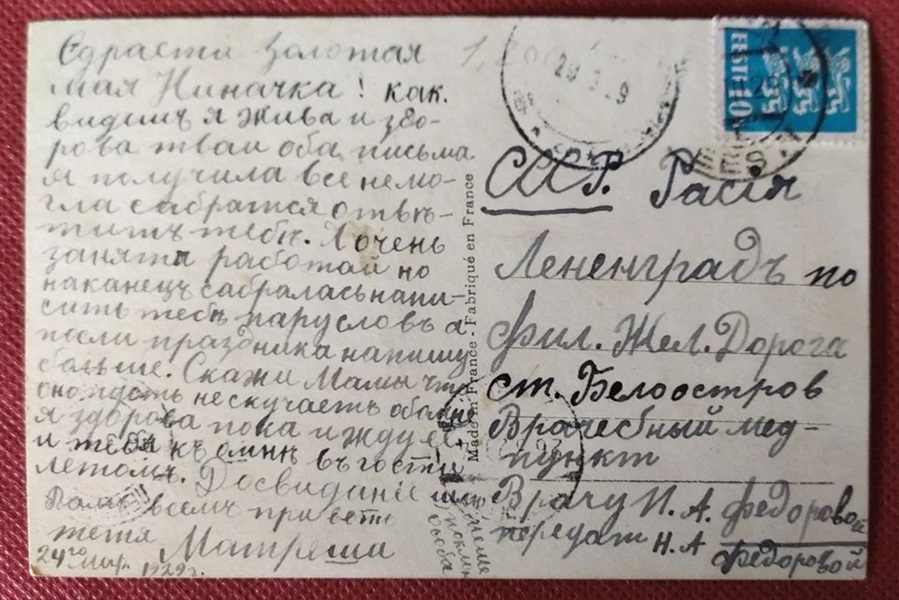 Сдрасти Золотая
мая Ниначка! как.
видишъ я жива и здо-
рова тваи оба письма
я получила все немо-
гла сабратся отвѣ-
тить тебѣ. Я очень
занята работай но
наканецъ сабралась напи-
сать тебѣ паруслов ъ а
посли праздника напишу
больше. Скажи Мамы что
она пусть не скучаетъ обомне
я здорова пока и жду ее
и тебя къ омнѣ въ гости
летомъ. Досвидание
всем привѣтъ
тетя Матреша
24го Мар. 1929г.
EESTI 10
Made in France - Fabriqué en France
СССР. Расія
Лененградъ по
Фил. Жел. Дорога
ст. Белоостров
Врачебный мед-
пункт
Врачу Н. А. Федоровой
передат Н. А
Федоровой